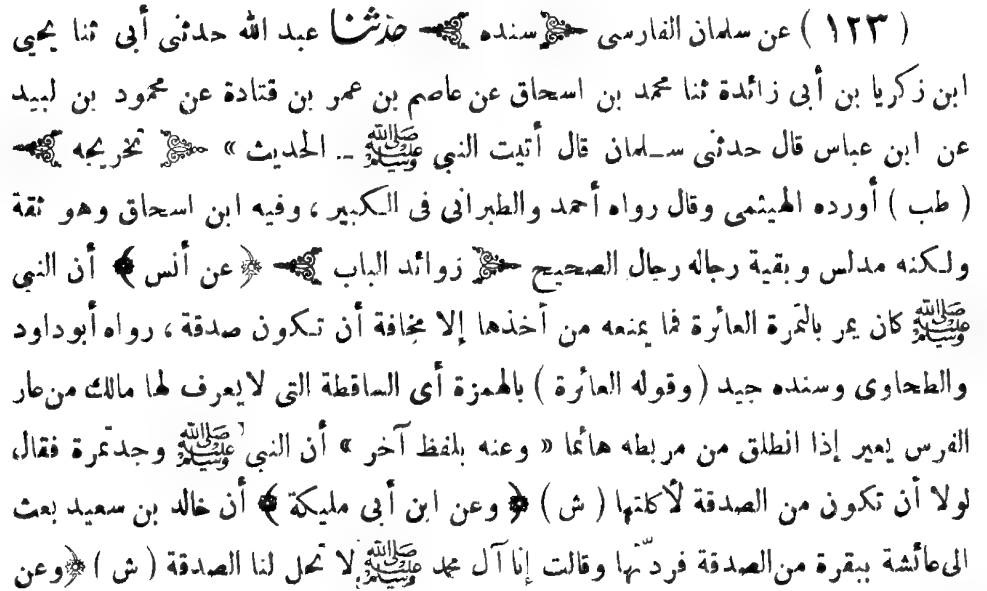 ( ١٢٣ ) عن سلمان الفارسى ﴿ سنده ﴾ حدثنا عبد الله حدثنى أبى ثنا يحيى
ابن زكريا بن أبى زائدة ثنا محمد بن اسحاق عن عاصم بن عمر بن قتادة عن محمود بن لبيد
عن ابن عباس قال حدثنى سلمان قال أتيت النبى ﷺ .. الحديث » ﴿ تخريجه ﴾
( طب ) أورده الهيثمى وقال رواه أحمد والطبرانى فى الكبير ، وفيه ابن اسحاق وهو ثقة
ولكنه مدلس وبقية رجاله رجال الصحيح ﴿ زوائد الباب ﴾ ﴿ عن أنس ﴾ أن النبى
ﷺ كان يمر بالتمرة العائرة فما يمنعه من أخذها إلا مخافة أن تكون صدقة ، رواه أبو داود
والطحاوى وسنده جيد ( وقوله العائرة ) بالهمزة أى الساقطة التى لا يعرف لها مالك من عار
الفرس يعير إذا انطلق من مربطه هائما « وعنه بلفظ آخر » أن النبى ﷺ وجد تمرة فقال
لولا أن تكون من الصدقة لأكلتها ( ش ) ﴿ وعن ابن أبى مليكة ﴾ أن خالد بن سعيد بعث
الى عائشة ببقرة من الصدقة فردّتها وقالت إنا آل محمد ﷺ لا تحل لنا الصدقة ( ش ) ﴿ وعن